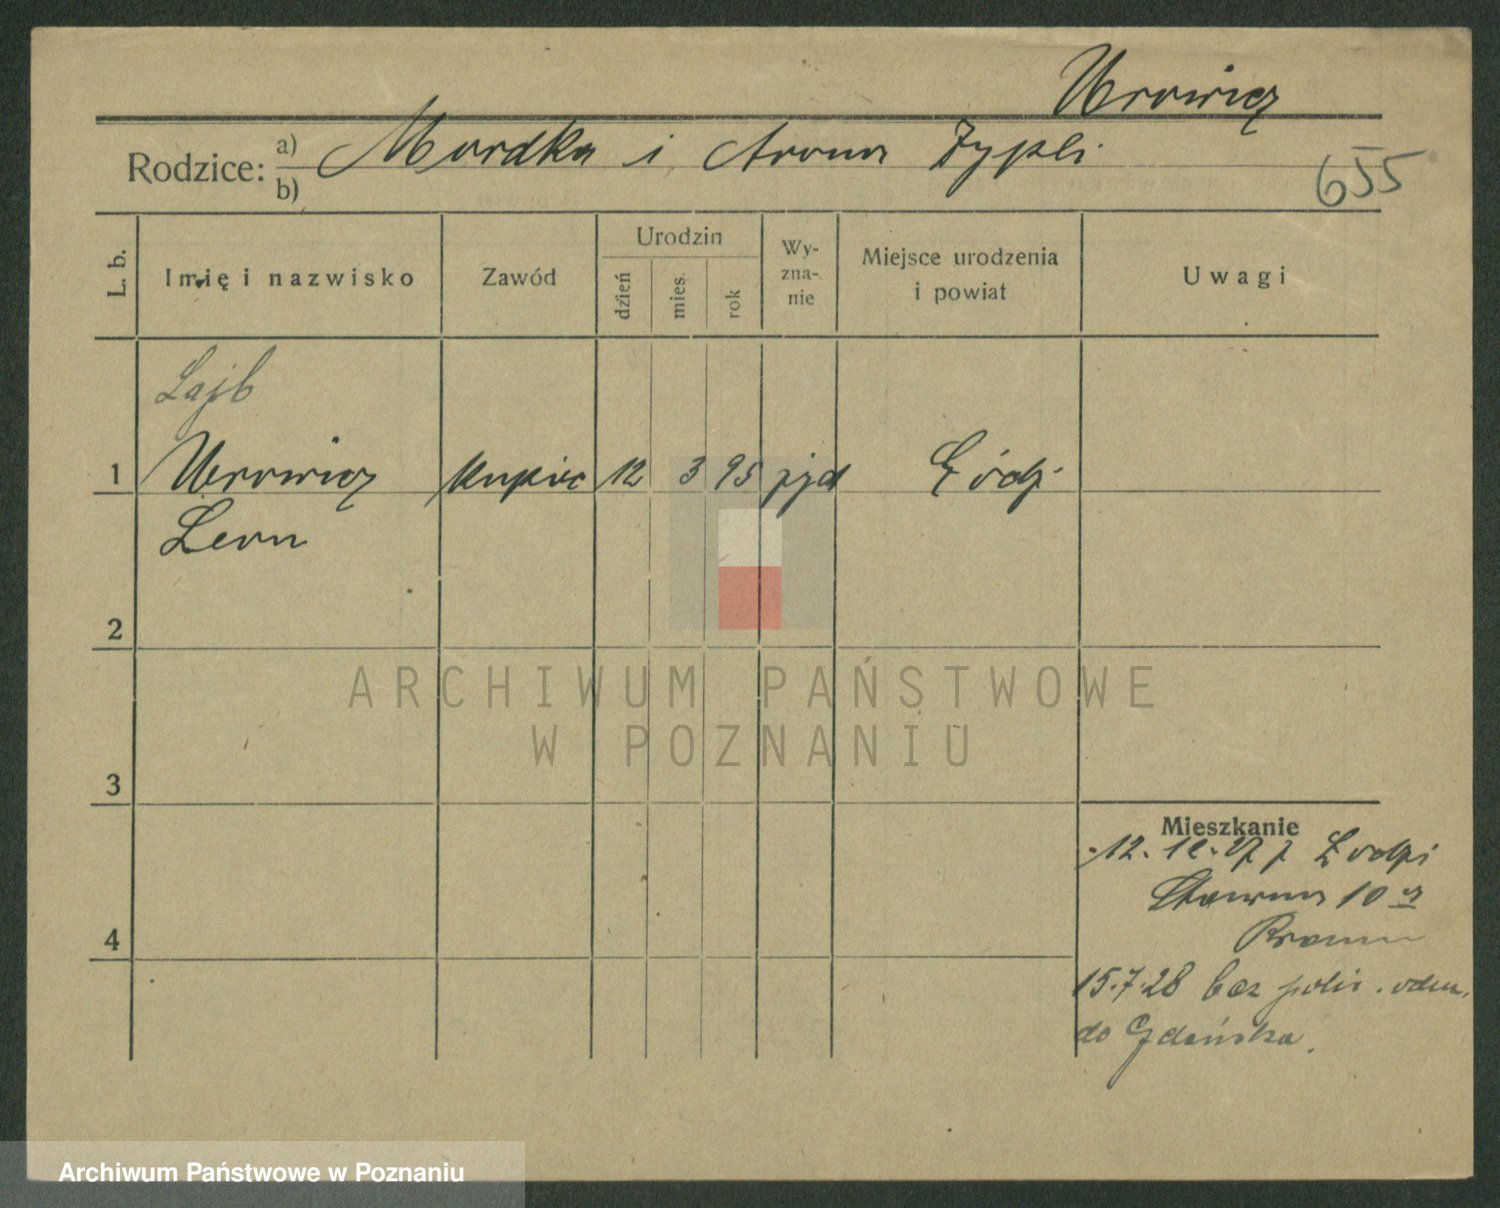 Urowicz
Rodzice: a) Mordka i Arona Zypli
b)
655
L. b.
Imię i nazwisko
Zawód
Urodzin
dzień
mies.
rok
Wy-
zna-
nie
Miejsce urodzenia
i powiat
Uwagi
Lajb
1 Urowicz kupiec 12 3 95 Łódź
Leon
2
ARCHIWUM PAŃSTWOWE
W POZNANIU
3
Mieszkanie
12. 12. 27 z Łodzi
10
4
15.7.28 bez
do Gdańska.
Archiwum Państwowe w Poznaniu